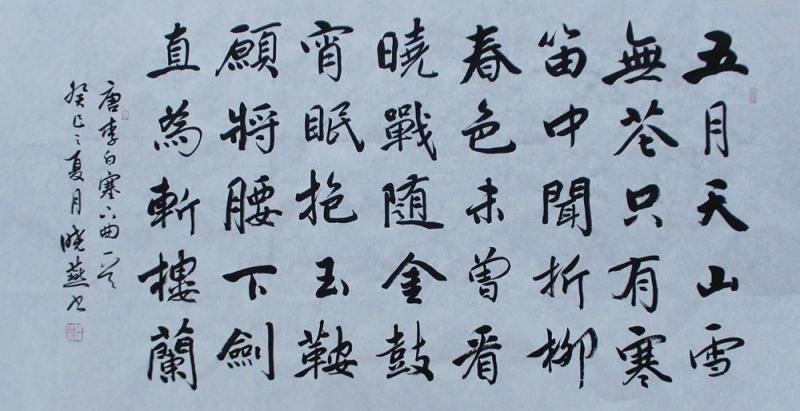 五月天山雪
無花只有寒
笛中聞折柳
春色未曾看
曉戰随金鼓
宵眠抱玉鞍
願將腰下劍
直為斬樓蘭
唐李白塞下曲一首
癸巳之夏月曉燕书